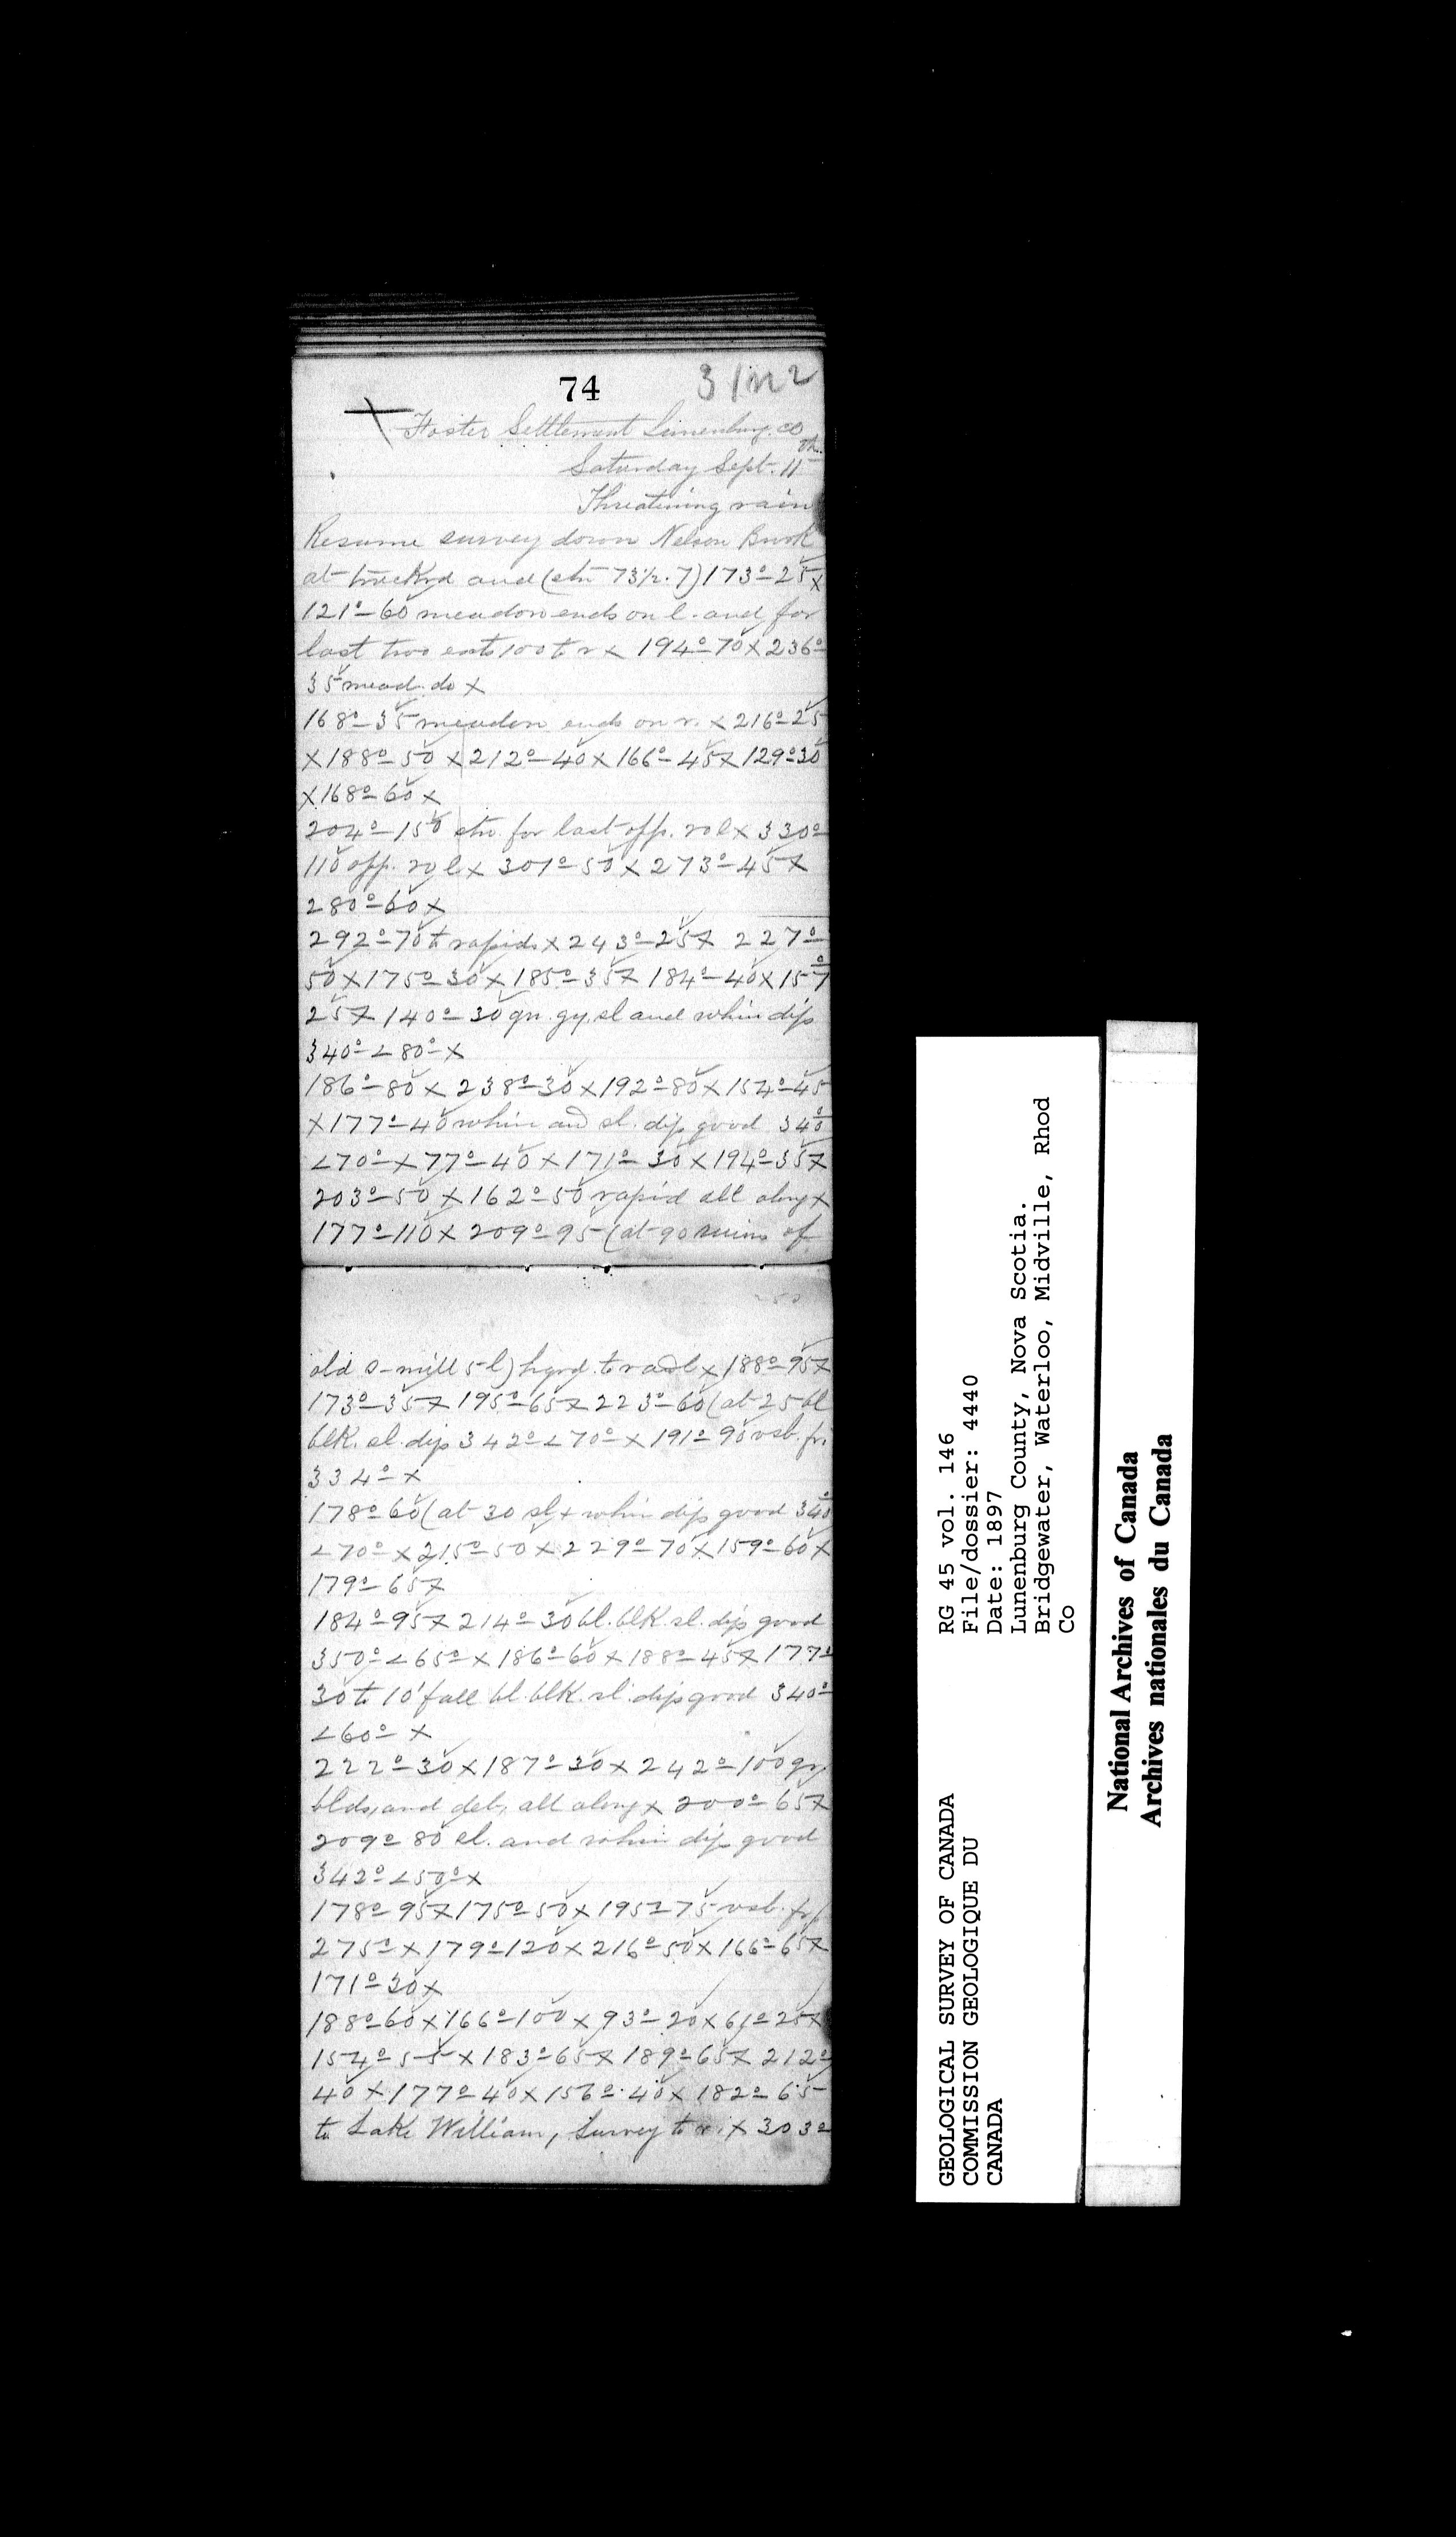 74
Foster Settlement Lunenburg. co
Saturday Sept. 11th
Threatining rain
Resume survey down Nelson Brook
at and (stn 73½. 7) 173º-25 x
121º-60 meadow ends on l. and for
last two exts 100 to r x 194º-70 x 236º-
35 mead. do x
168º-35 meadow ends on r. x 216º-25
x 188º-50 x 212º-40 x 166º-45 x 129º-30
x 168º-60 x
204º-150 stn. for last opp. r & l x 330º-
110 opp. r & l x 301º-50 x 273º-45 x
280º-60 x
292º-70 to rapids x 243º-25 x 227º-
50 x 175º-30 x 185º-35 x 184º-40 x 157º
25 x 140º-30 gn. gy. sl and whin dip
340º-<80º-x
186º-80 x 238º-30 x 192º-80 x 154º-45
x 177º-40 whin and sl. dip good 340º
<70º-x 77º-40 x 171º-30 x 194º-35 x
203º-50 x 162º-50 rapid all along x
177º-110 x 209º-95 (at 90 ruins of
old s-mill 5 l) hard to r and l x 188º-95 x
173º-35 x 195º-65 x 223º-60 (at 25 bl
blk. sl. dip 342º-<70º-x 191º-90 vsb. fr.
334º-x
178º-60 (at 30 sl + whin dip good 340º
<70º-x 215º-50 x 229º-70 x 159º-60 x
179º-65 x
184º-95 x 214º-30 bl. blk. sl. dip good
350º-<65º-x 186º-60 x 188º-45 x 177º-
30 to 10' fall bl. blk. sl. dip good 340º-
<60º-x
222º-30 x 187º-30 x 242º-100 gr.
blds, and deb, all along x 200º-65 x
209º-80 sl. and whin dip good
342º-<50º-x
178º-95 x 175º-50 x 195º-75 vsb.
275º-x 179º-120 x 216º-50 x 166º-65 x
171º-30 x
188º-60 x 166º-100 x 93º-20 x 61º-25 x
154º-55 x 183º-65 x 189º-65 x 212º-
40 x 177º-40 x 156º-40 x 182º-65
to Lake William, Survey to r. x 303º-
GEOLOGICAL SURVEY OF CANADA
COMMISSION GEOLOGIQUE DU
CANADA
RG 45 vol. 146
File/dossier: 4440
Date: 1897
Lunenburg County, Nova Scotia.
Bridgewater, Waterloo, Midville, Rhod
Co
National Archives of Canada
Archives nationales du Canada